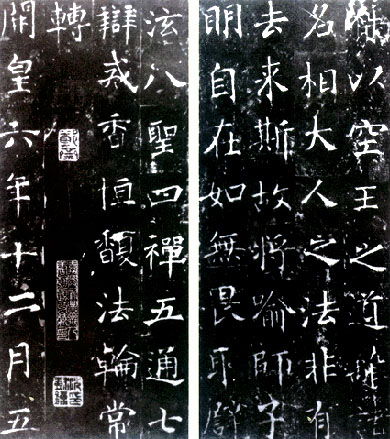 以空王之道離諸
名相大人之法非有
去來斯故將喻師子
明自在如無畏取譬
泫八聖四禪五通七
辯戒香恒馥法輪常
轉
開皇六年十二月五